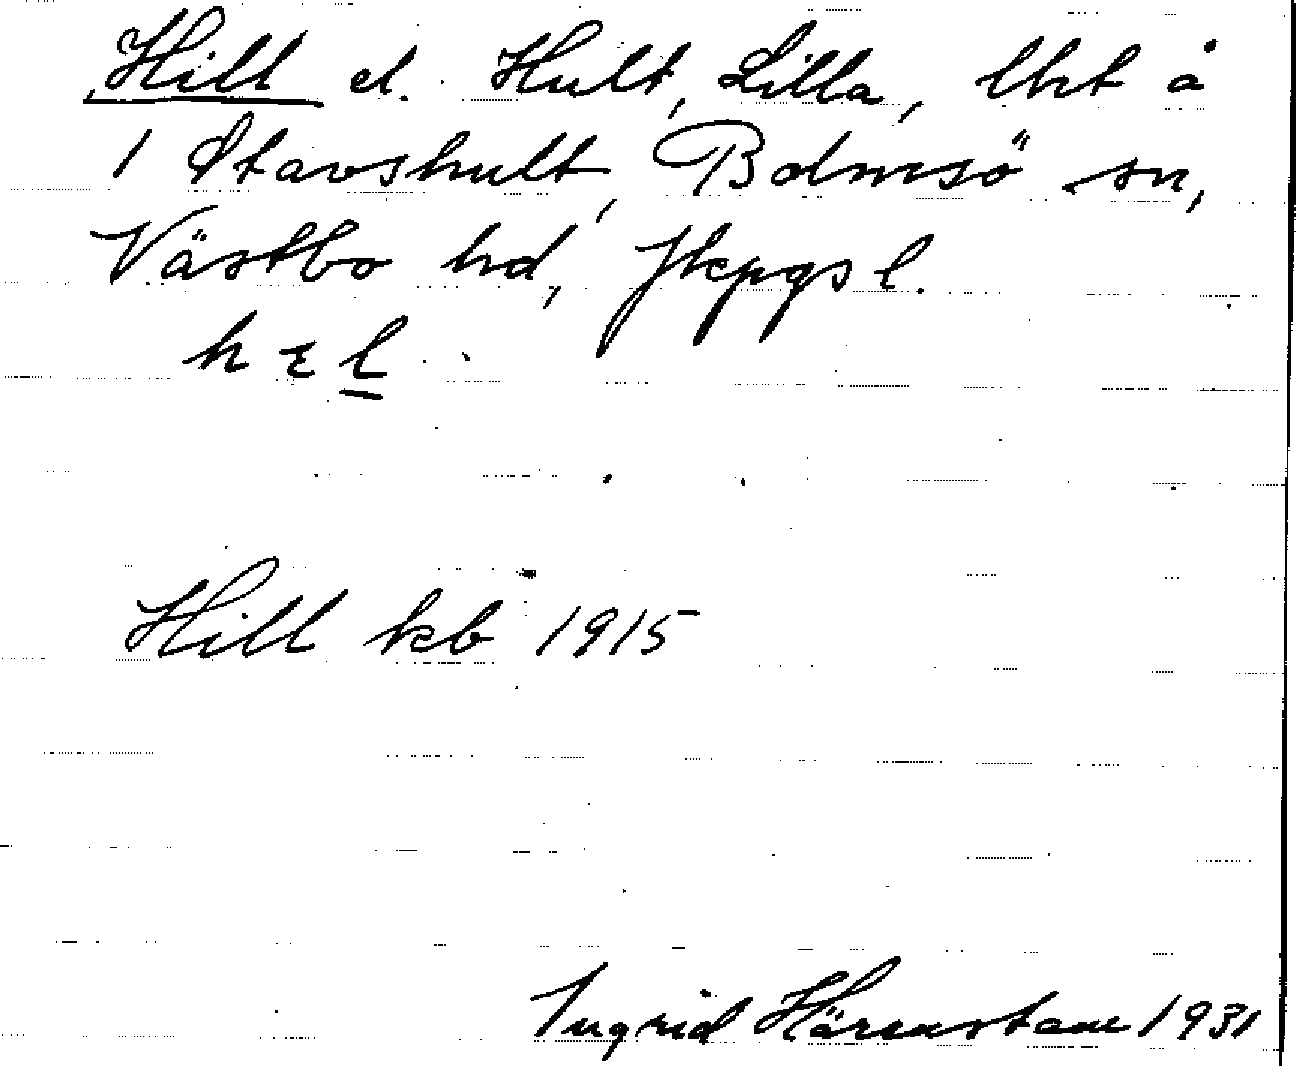 Hill el. Hult, Lilla, lht å
1 Stavshult, Bdmsö sn,
Västbo hd, Jkpgs l.
hɛl
Hill kb 1915
Ingrid Härenstam 1931